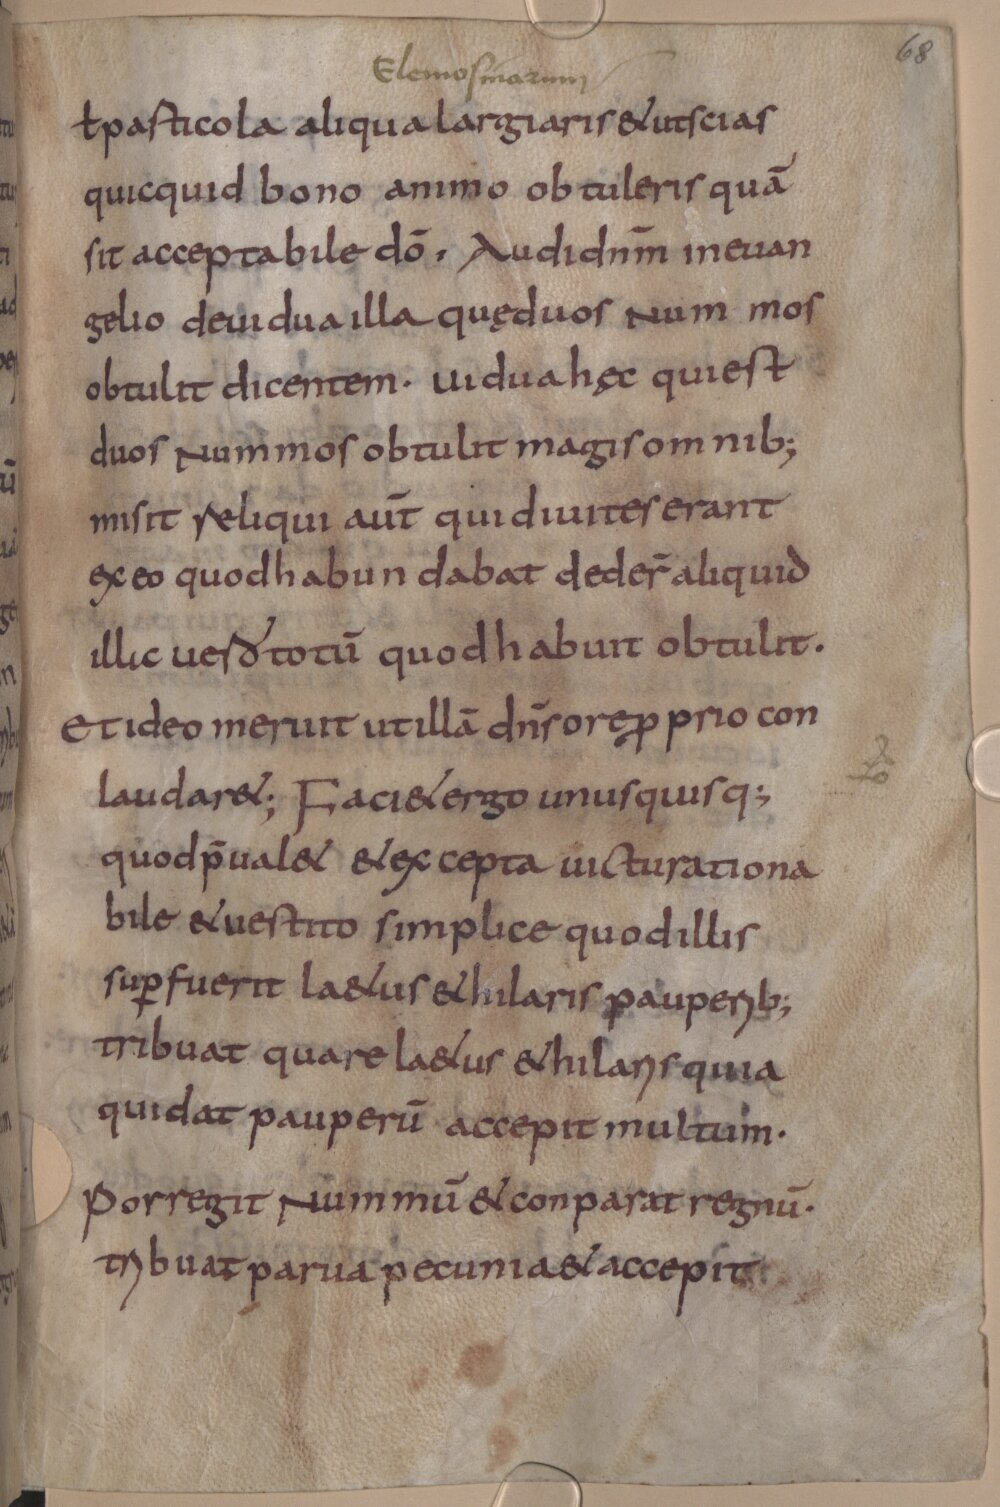 68
Elemosinarum
ł pasticola aliqua largiaris & ut scias
quicquid bono animo obtuleris quā
sit acceptabile dō. Audi dnm̄ in euan
gelio de uidua illa quę duos num mos
obtulit dicentem. uidua hęc qui est
duos nummos obtulit magis omnib;
misit reliqui aut̄ qui diuites erant
ex eo quod habun dabat deder̄ aliquid
illic ues totū quod habuit obtulit.
Et ideo meruit ut illā dn̄s ore ꝓprio con
laudar&; Faci& ergo unusquisq;
quod p̄ual& & excepta uictu rationa
bile & uestito simplice quod illis
suꝑfuerit la&us & hilaris pauperib;
tribuat quare la&us & hilaris quia
qui dat pauperū accepit multum.
Porregit nummū & conparat regnū.
tribuat parua pecunia & accepit